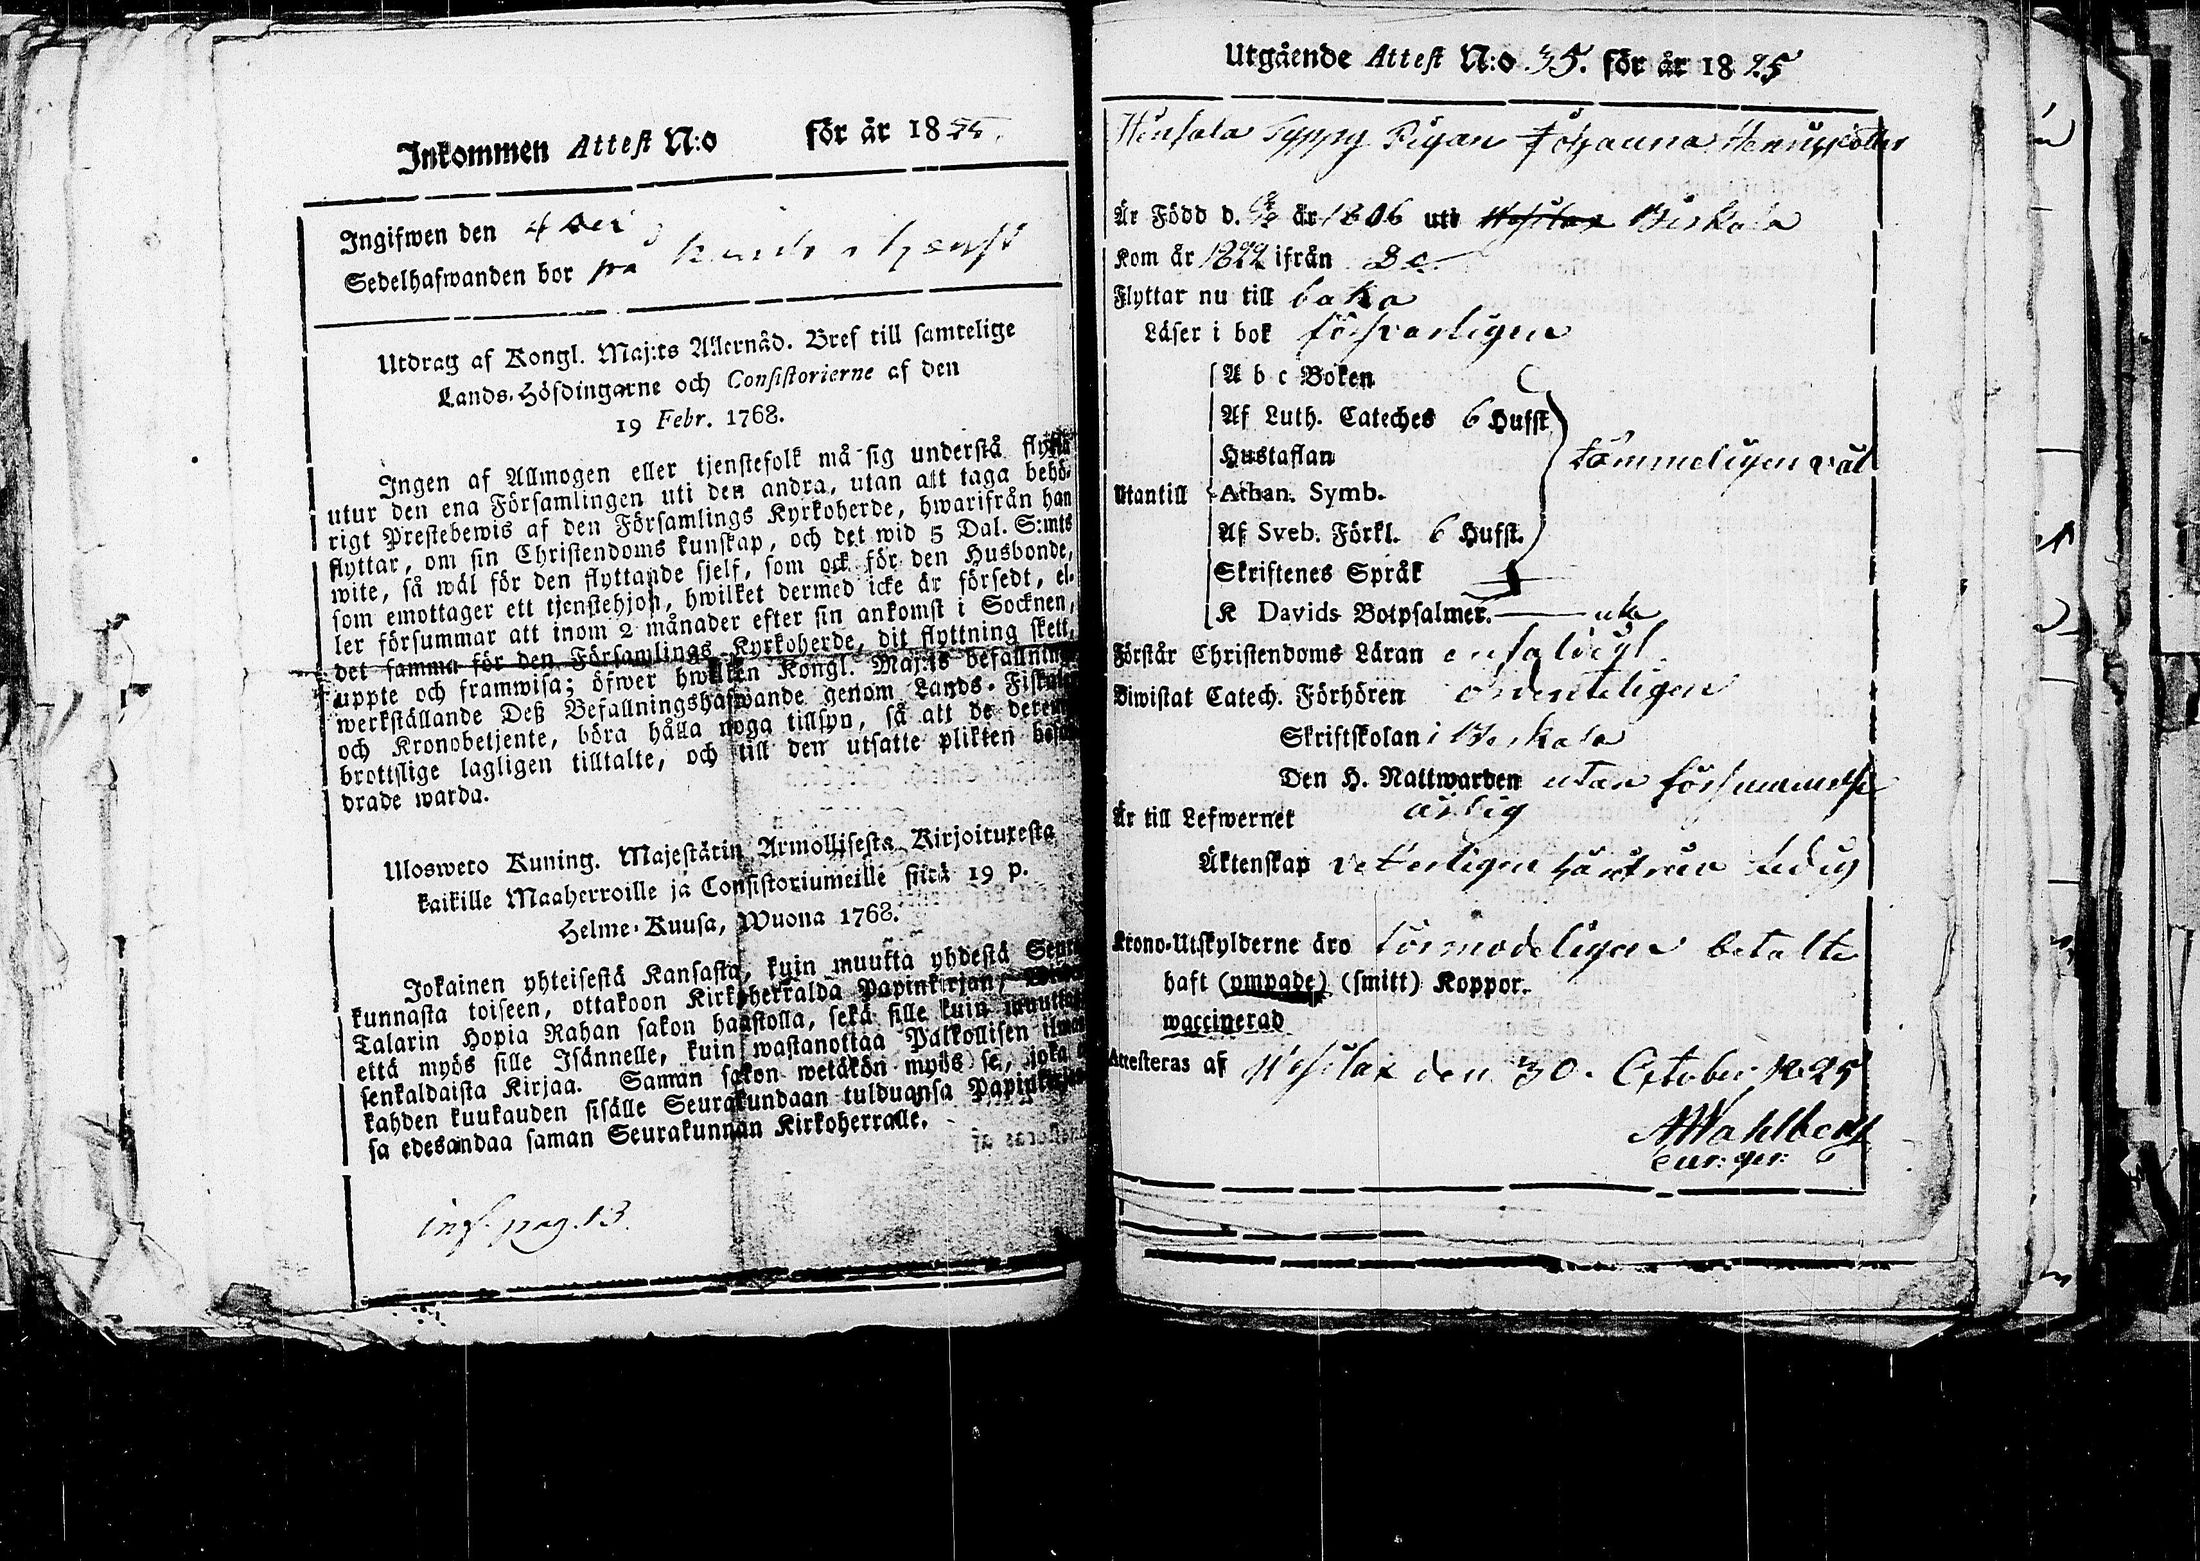 Inkommen Attest N:o för år 1825.
Ingifwen den 4 Dec
Sedelhafwanden bor på
Utdrag af Kongl. Maj:ts Allernåd. Bref till samtelige
Lands-Höfdingarne och Consistorierne af den
19 Febr. 1768.
Ingen af Allmogen eller tjenstefolk må sig understå flytta
utur den ena Församlingen uti den andra, utan att taga behö-
rigt Prestebewis af den Församlings Kyrkoherde, hwarifrån han
flyttar, om sin Christendoms kunskap, och det wid 5 Dal. S:mts
wite, så wäl för den flyttande sjelf, som ock för den Husbonde,
som emottager ett tjenstehjon, hwilket dermed icke är försedt, el-
ler försummar att inom 2 månader efter sin ankomst i Socknen,
det samma för den Församlings Kyrkoherde, dit flyttning skett,
uppte och framwisa; öfwer hwilken Kongl. Maj:ts befallning
werkställande Deß Befallningshafwande genom Lands-Fiskaler
och Kronobetjente, böra hålla noga tillsyn, så att de deremot
brottslige lagligen tilltalte, och till den utsatte plikten befor-
drade warda.
Ulosweto Kuning. Majestätin Armollisesta Kirjoituxesta
kaikille Maaherroille ja Consistoriumeille siitä 19 p.
Helme-Kuusa, Wuona 1768.
Jokainen yhteisestä Kansasta, kuin muutta yhdestä Seura-
kunnasta toiseen, ottakoon Kirkoherralda Papinkirjan,
Talarin Hopia Rahan sakon haastolla, sekä sille kuin muuttaa
että myös sille Isännelle, kuin wastanottaa Palkollisen ilman
senkaldaista Kirjaa. Saman sakon wetäkön myös se, joka ei
kahden kuukauden sisälle Seurakundaan tulduansa Papinkirjaan-
sa edesandaa saman Seurakunnan Kirkoherralle.
inf. pag. 13.
Utgående Attest N:o 35. för år 1825
Pigan Johanna Henricsdotter
Är Född d. år 1806 uti Wesilax Birkala
Kom år 1822 ifrån
Flyttar nu till baka
Läser i bok försvarligen
Utantill
A b c Boken
Af Luth. Cateches 6 Hufst.
Hustaflan
tämmeligen väl
Athan. Symb.
Af Sveb. Förkl. 6 Hufst.
Skriftenes Språk
K Davids Botpsalmer. uta
Förstår Christendoms Läran enfaldigt
Biwistat Catech. Förhören ordenteligen
Skriftskolan i Birkala
Den H. Nattwarden utan försummelse
Är till Lefwernet ärlig
Äktenskap veterligen härifrån ledig
Krono-Utskylderne äro förmodeligen betalte
haft (ympade) (smitt) Koppor.
waccinerad
Attesteras af Wesilax den 30. October 1825
A Wahlberg